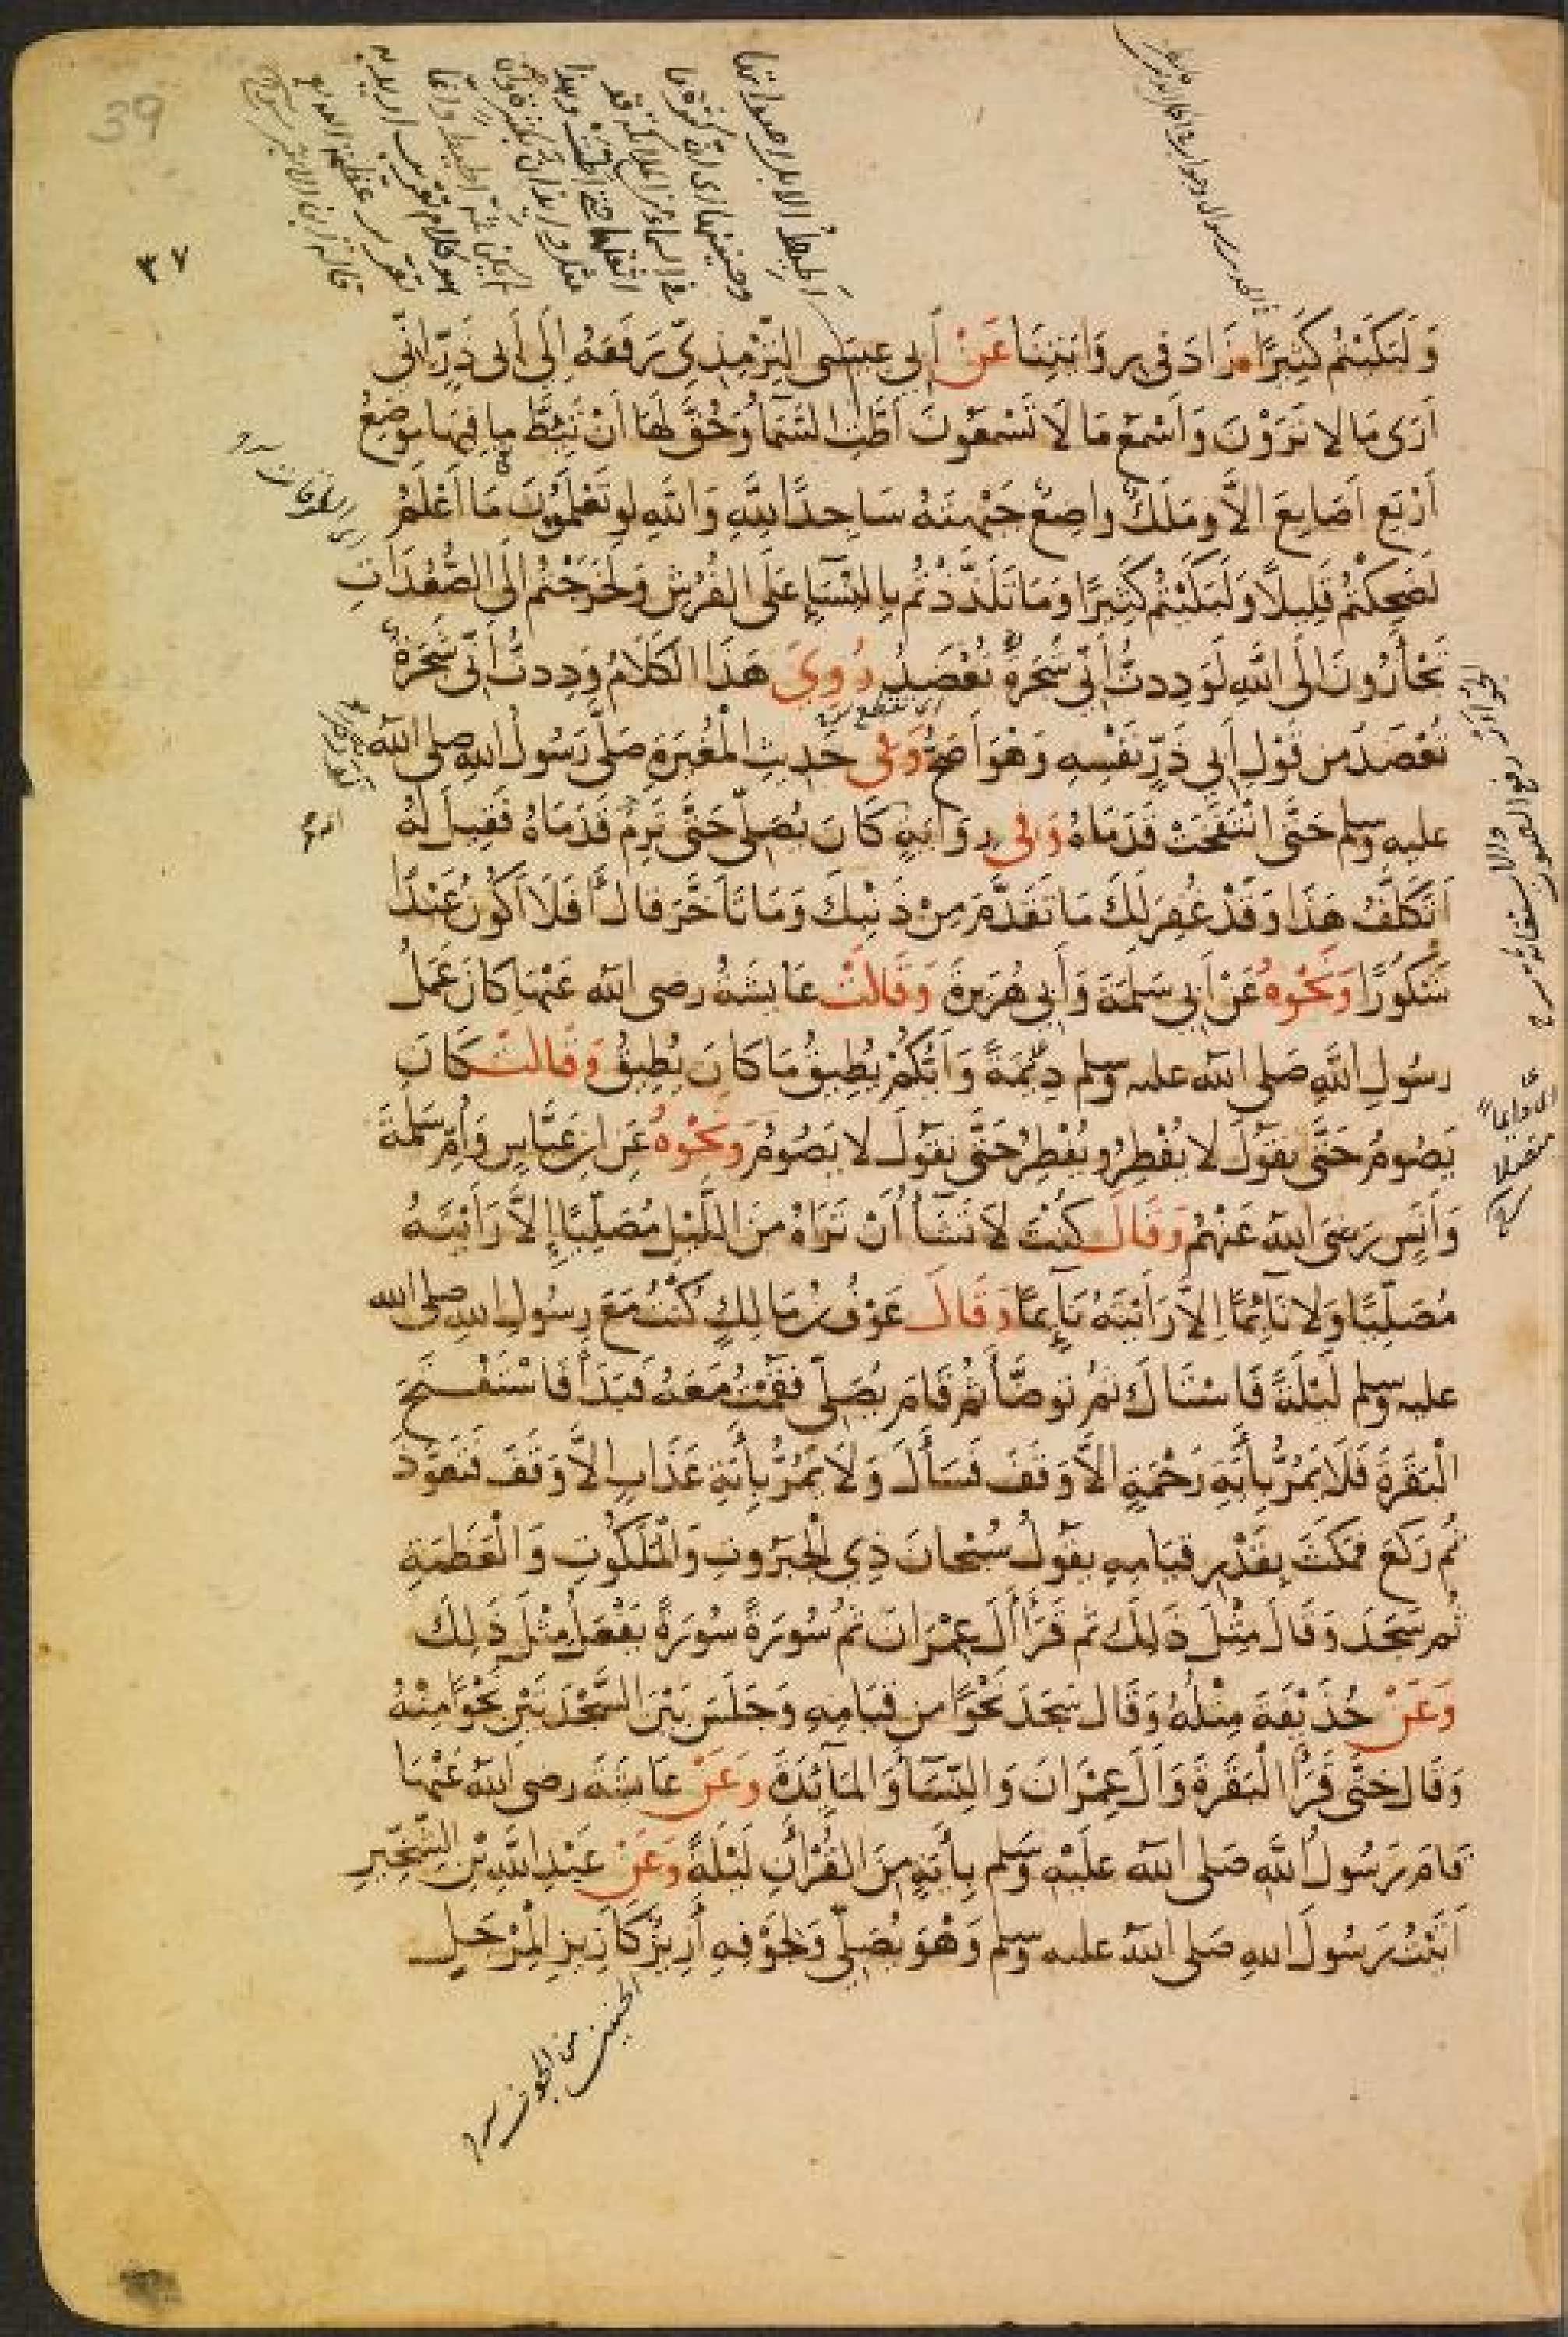 39
٣٧
وَلَبَكَيْتُمْ كَثِيرًا زَادَ فِي رِوَايَتِنَا عَنْ أَبِي عِيسَى التِّرْمِذِيِّ رَفَعَهُ إِلَى أَبِي ذَرٍّ إِنِّي
أَرَى مَا لَا تَرَوْنَ وَأَسْمَعُ مَا لَا تَسْمَعُونَ أَطَّتِ السَّمَاءُ وَحُقَّ لَهَا أَنْ تَئِطَّ مَا فِيهَا مَوْضِعُ
أَرْبَعِ أَصَابِعَ إِلَّا وَمَلَكٌ وَاضِعٌ جَبْهَتَهُ سَاجِدًا لِلَّهِ وَاللَّهِ لَوْ تَعْلَمُونَ مَا أَعْلَمُ
لَضَحِكْتُمْ قَلِيلًا وَلَبَكَيْتُمْ كَثِيرًا وَمَا تَلَذَّذْتُمْ بِالنِّسَاءِ عَلَى الْفُرُشِ وَلَخَرَجْتُمْ إِلَى الصُّعُدَاتِ
تَجْأَرُونَ إِلَى اللَّهِ لَوَدِدْتُ أَنِّي شَجَرَةٌ تُعْضَدُ رُوِيَ هَذَا الْكَلَامُ وَدِدْتُ أَنِّي شَجَرَةٌ
تُعْضَدُ مِنْ قَوْلِ أَبِي ذَرٍّ نَفْسِهِ وَهُوَ أَصَحُّ وَفِي حَدِيثِ الْمُغِيرَةِ صَلَّى رَسُولُ اللَّهِ صلى الله
عليه وسلم حَتَّى انْتَفَخَتْ قَدَمَاهُ وَفِي رِوَايَةٍ كَانَ يُصَلِّي حَتَّى تَرِمَ قَدَمَاهُ فَقِيلَ لَهُ
أَتَكَلَّفُ هَذَا وَقَدْ غُفِرَ لَكَ مَا تَقَدَّمَ مِنْ ذَنْبِكَ وَمَا تَأَخَّرَ قَالَ أَفَلَا أَكُونُ عَبْدًا
شَكُورًا وَنَحْوُهُ عَنْ أَبِي سَلَمَةَ وَأَبِي هُرَيْرَةَ وَقَالَتْ عَائِشَةُ رضى الله عَنْهَا كَانَ عَمَلُ
رسُولِ اللَّهِ صَلى الله عليه وسلم دِيمَةً وَأَيُّكُمْ يُطِيقُ مَا كَانَ يُطِيقُ وَقَالَتْ كَانَ
يَصُومُ حَتَّى نَقُولَ لَا يُفْطِرُ وَيُفْطِرُ حَتَّى نَقُولَ لَا يَصُومُ وَنَحْوُهُ عَنِ ابْنِ عَبَّاسٍ وَأُمِّ سَلَمَةَ
وَأَنَسٍ رَضِيَ اللَّهُ عَنْهُمْ وَقَالَ كُنْتَ لَا تَشَاءُ أَنْ تَرَاهُ مِنَ اللَّيْلِ مُصَلِّيًا إِلَّا رَأَيْتَهُ
مُصَلِّيًا وَلَا نَائِمًا إِلَّا رَأَيْتَهُ نَائِمًا وَقَالَ عَوْفُ بْنُ مَالِكٍ كُنْتُ مَعَ رَسُولِ اللهِ صلى الله
عليه وسلم لَيْلَةً فَاسْتَاكَ ثُمَّ تَوَضَّأَ ثُمَّ قَامَ يُصَلِّي فَقُمْتُ مَعَهُ فَبَدَأَ فَاسْتَفْتَحَ
الْبَقَرَةَ فَلَا يَمُرُّ بِأَيَةِ رَحْمَةٍ إِلَّا وَقَفَ فَسَأَلَ وَلَا يَمُرُّ بِأَيَةِ عَذَابٍ إِلَّا وَقَفَ فَتَعَوَّذَ
ثُمَّ رَكَعَ فَمَكَثَ بِقَدْرِ قِيَامِهِ يَقُولُ سُبْحَانَ ذِي الْجَبَرُوتِ وَالْمَلَكُوتِ وَالْعَظَمَةِ
ثُمَّ سَجَدَ وَقَالَ مِثْلَ ذَلِكَ ثُمَّ قَرَأَ أَلَ عِمْرَانَ ثُمَّ سُورَةً سُورَةً يَفْعَلُ مِثْلَ ذَلِكَ
وَعَنْ حُذَيْفَةَ مِثْلُهُ وَقَالَ سَجَدَ نَحْوًا مِنْ قِيَامِهِ وَجَلَسَ بَيْنَ السَّجْدَتَيْنِ نَحْوًا مِنْهُ
وَقَالَ حَتَّى قَرَأَ الْبَقَرَةَ وَأَلَ عِمْرَانَ وَالنِّسَاءَ وَالْمَائِدَةَ وَعَنْ عَائِشَةَ رضى الله عَنْهَا
قَامَ رَسُولُ اللَّهِ صَلى الله عليه وَسَلم بِأَيَةٍ مِنَ الْقُرْأَنِ لَيْلَةً وَعَنْ عَبْدِ اللَّهِ بْنِ الشِّخِّيرِ
أَتَيْتُ رَسُولَ اللهِ صَلى الله عليه وسلم وَهُوَ يُصَلِّي وَلِجَوْفِهِ أَزِيزٌ كَأَزِيزِ الْمِرْجَلِ
اى الطرقات
اى دايما متصلا
الحنين من الجوف